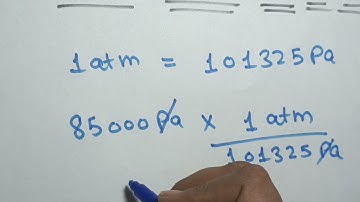 1 atm = 101325 Pa
85000 Pa × 1 atm
101325 Pa